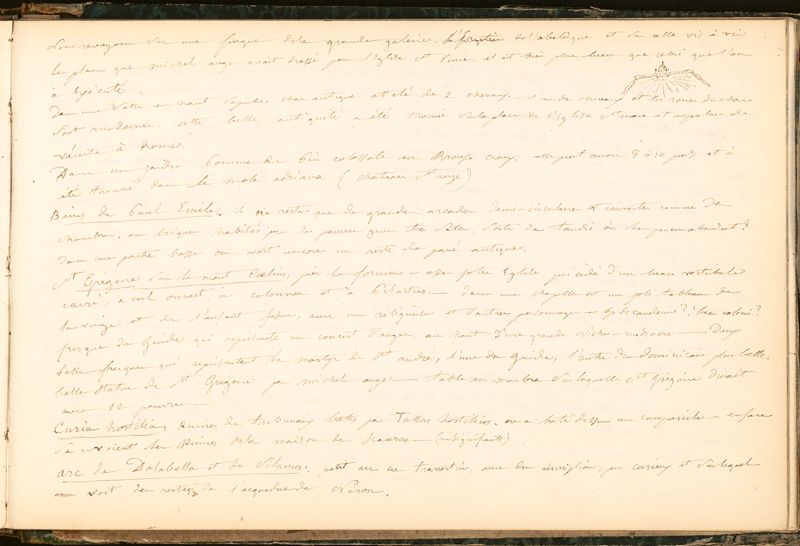 nous revoyons sur une fresque de la grande galerie, l'érection de l'obélisque et sur celle vis à vis
le plan que michel ange avait dressé pour l'Eglise St Pierre. il est bien plus beau que celui que l'on
a exécuté.
Dans une salle en haut, superbe char antique attelé de 2 chevaux. l'un des chevaux et les roues du char
sont modernes. cette belle antiquité a été trouvée sur la place de l'Eglise St marc
à Rome.
Dans un jardin Pomme de Pin colossale en Bronze creux. elle peut avoir 8 à 10 pieds et a
été trouvée dans le mole adriana (chateau St ange)
Bains de Paul Emile. il ne reste que de grandes arcades demi-circulaires et couvertes comme de
chambres, en brique habités par de pauvres gens très sales, sorte de taudis où les puces abondent?
dans une partie basse on voit encore un reste de pavé antique.
St Grégoire sur le mont Coelius, près le forum — assez jolie Eglise précédé d'un beau vestibule
carré, à ciel ouvert à colonnes et à Pilastres. — dans une chapelle est un joli tableau de
la vierge et de l'enfant Jésus, avec une religieuse et d'autres personnages —
fresque du Guide qui représente un concert d'anges, au haut d'une grande niche — — Deux
belles fresques qui représentent le martyr de St andré, l'une du Guide, l'autre du dominicain plus belle.
belle statue de St Grégoire par michel ange — table en marbre sur laquelle St Grégoire dinait
avec 12 pauvres —
Curia hostilia, ruines de tribunaux batis par Tullus hostilius. on a bati dessus un campanile — en face
se voient les Ruines de la maison de Scaurus — (insignifiants)
arc de Dolabella et de Silanus. petit arc en travertin, avec une inscription, peu curieux et sur lequel
on voit des restes de l'aqueduc de Néron.